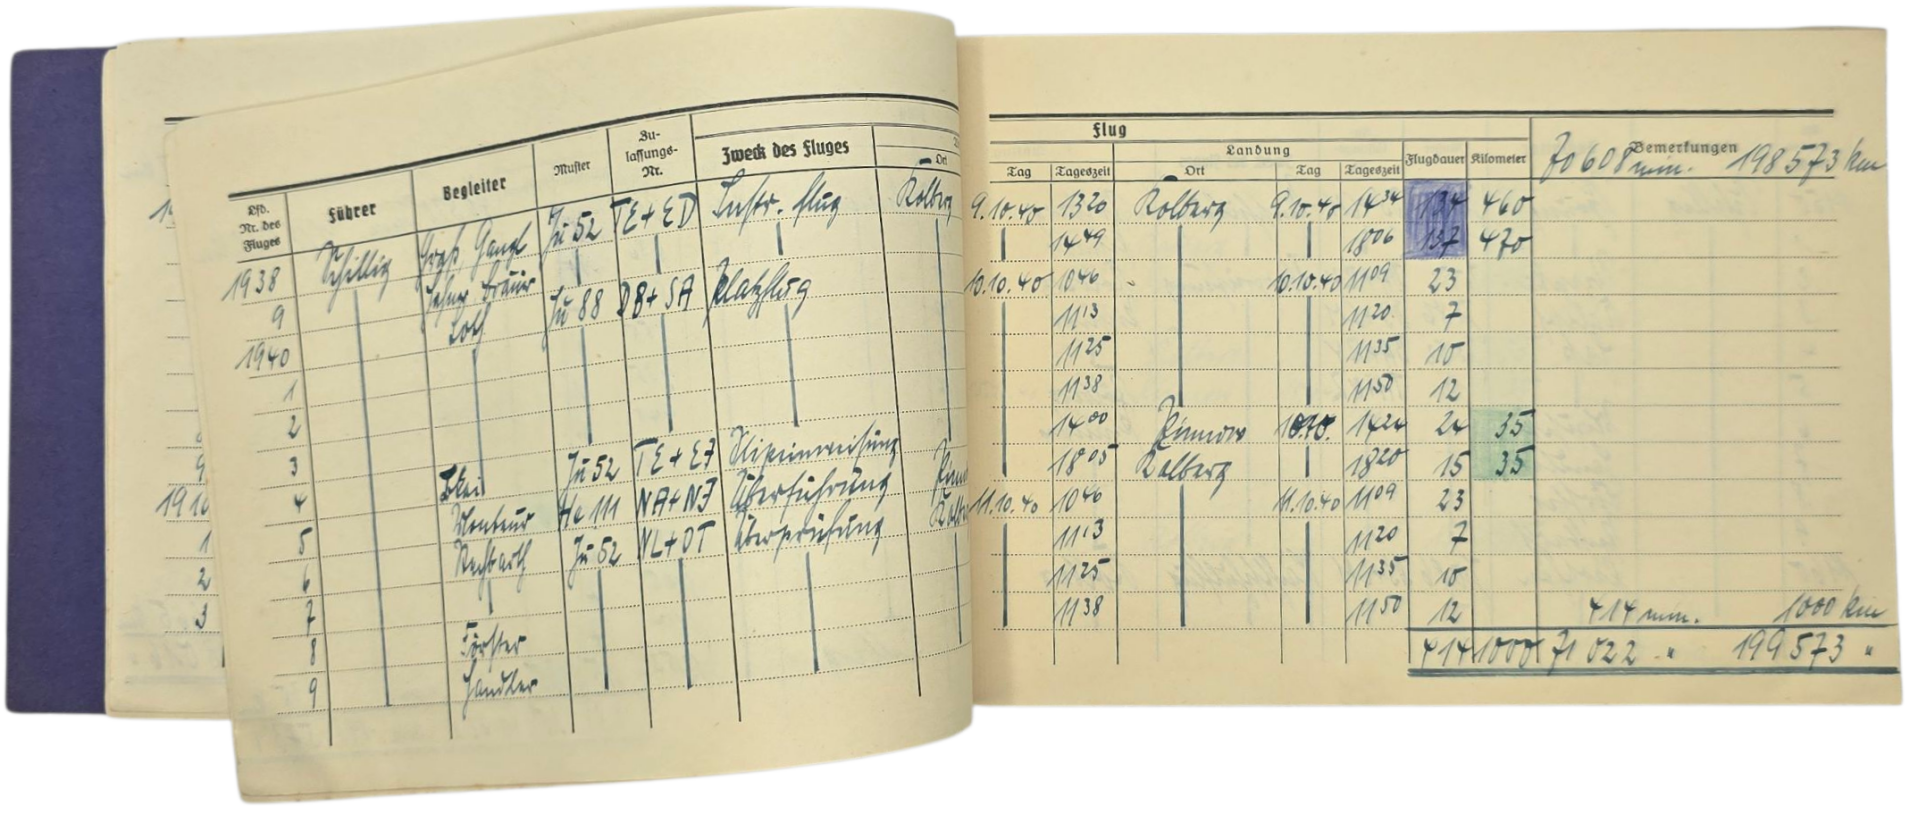 Flug
Lfd. Nr. des Fluges
Führer
Begleiter
Muster
Zu-lassungs-Nr.
Zweck des Fluges
Ort
Tag
Tageszeit
Landung
Ort
Tag
Tageszeit
Flugdauer
Kilometer
Bemerkungen
70608 min. 198573 km
1938 Schillig Ju 52 TE+ED Instr. flug Kolberg 9.10.40 13 20 Kolberg 9.10.40 14 34 134 460
9 14 49 18 06 197 470
1940 Ju 88 DB+SA Platzflug 10.10.40 10 46 10.10.40 11 09 23
1 11 13 11 20 7
2 11 25 11 35 10
3 11 38 11 50 12
4 Ju 52 TE+EJ 14 00 Zinnow 10.10. 14 24 24 35
5 Monteur He 111 NA+NJ Überführung 18 05 Kolberg 18 20 15 35
6 Ju 52 NL+OT Überprüfung 11.10.40 10 46 11.10.40 11 09 23
7 11 13 11 20 7
8 Förster 11 25 11 35 10
9 Handler 11 38 11 50 12
414 min. 1000 km
414 1000 71022 " 199573 "
1
2
3